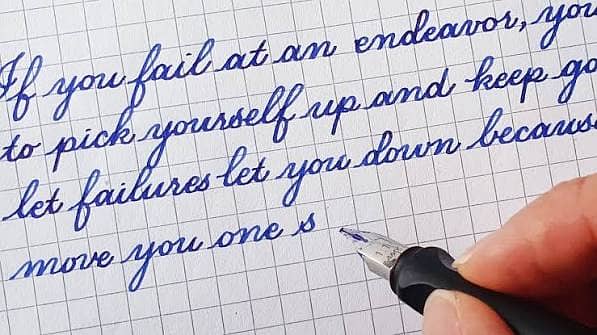 If you fail at an endeavor, you
to pick yourself up and keep go
let failures let you down because
move you one s